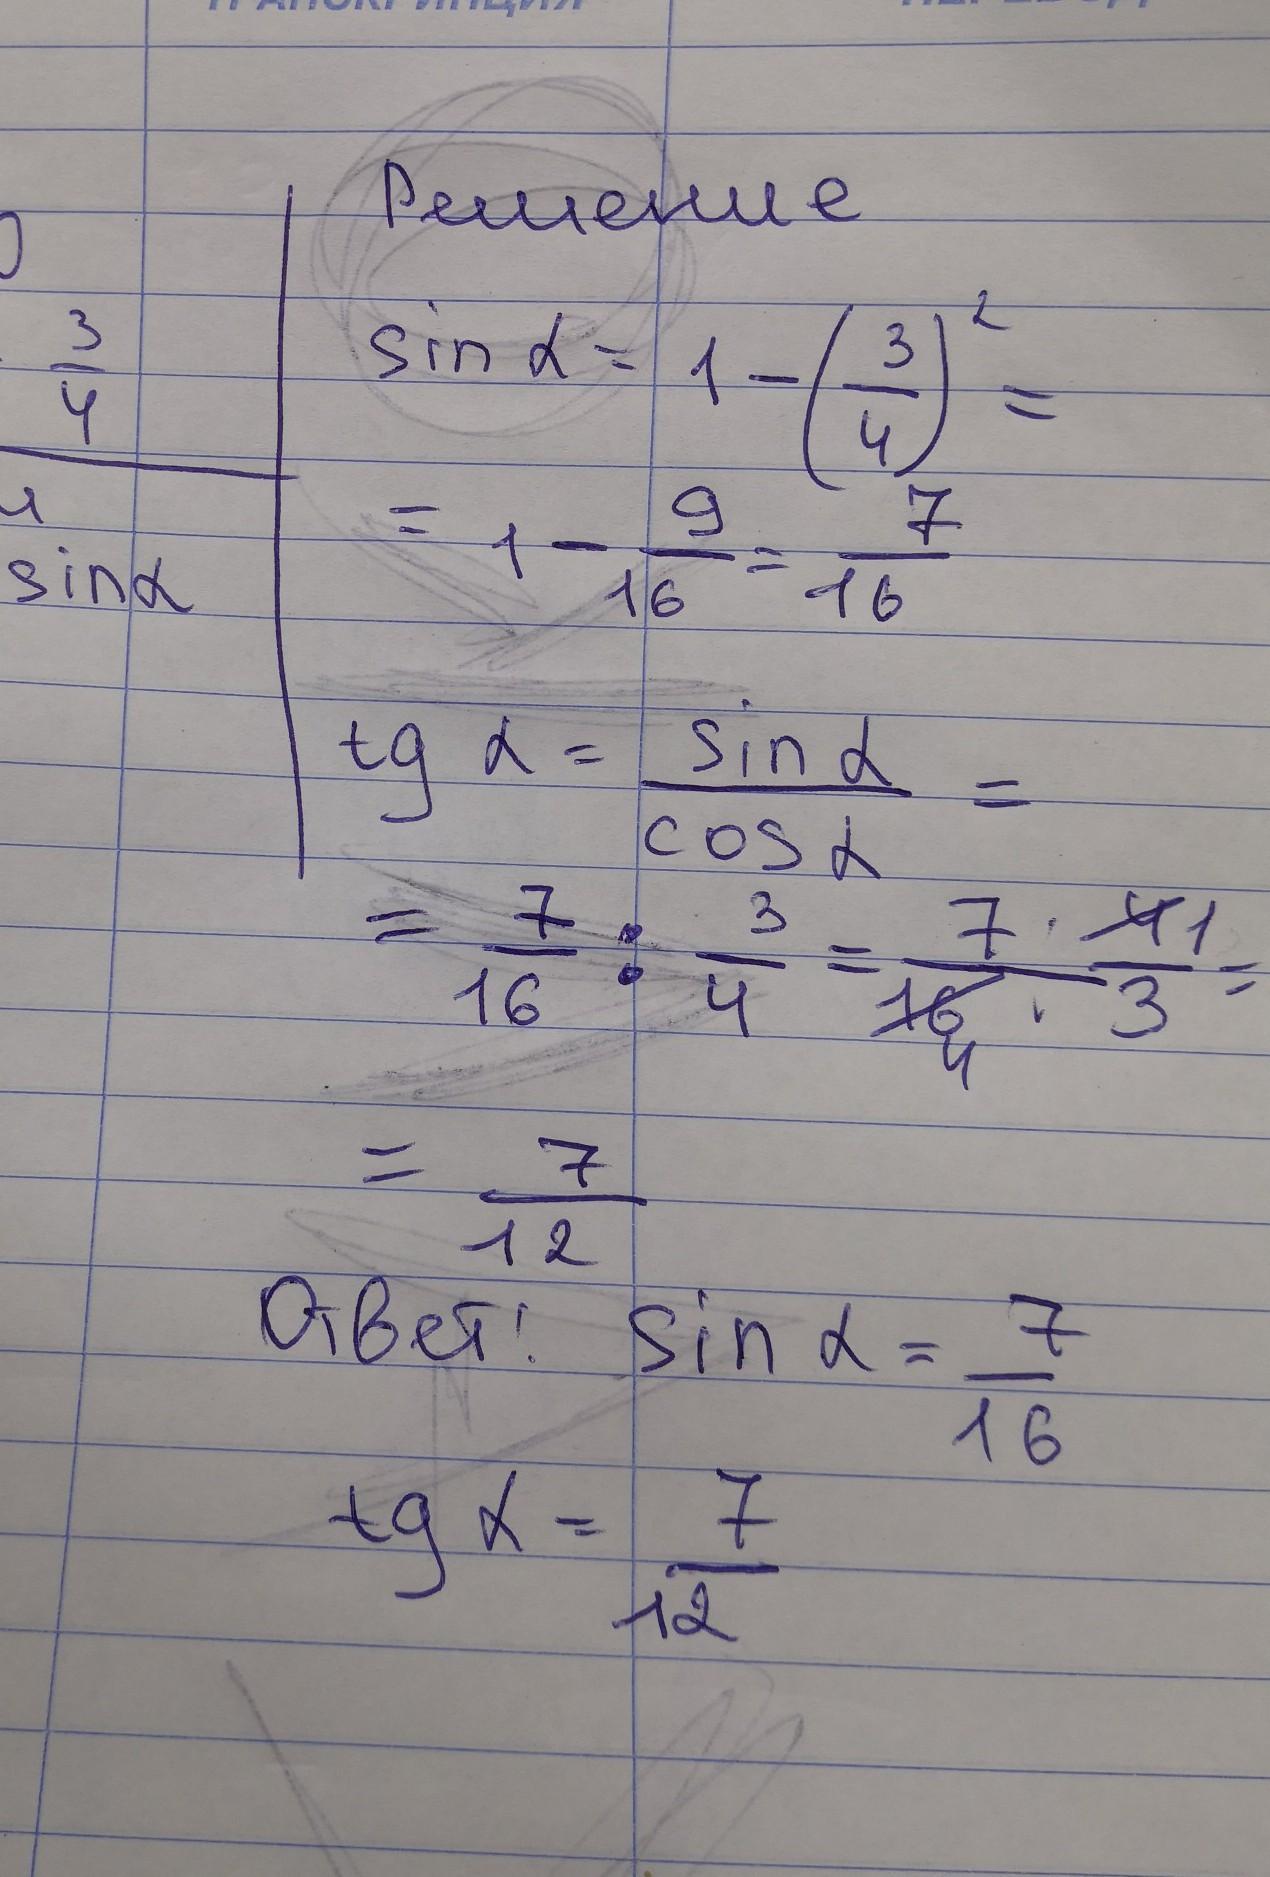 ТРАНСКРИПЦИЯ ПЕРЕВОД
Решение
3/4
sin α
sin α = 1 - (3/4)² =
= 1 - 9/16 = 7/16
tg α = sin α / cos α =
= 7/16 : 3/4 = 7 · 4 1 / 16 4 · 3 =
= 7/12
Ответ: sin α = 7/16
tg α = 7/12